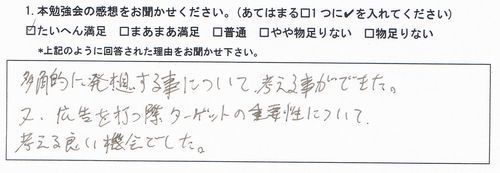 1.本勉強会の感想をお聞かせください。(あてはまる□1つに✔を入れてください)
☑たいへん満足 □まあまあ満足 □普通 □やや物足りない □物足りない
*上記のように回答された理由をお聞かせ下さい。
多角的に発想する事について、考える事ができた。
又、広告を打つ際ターゲットの重要性について
考える良い機会でした。